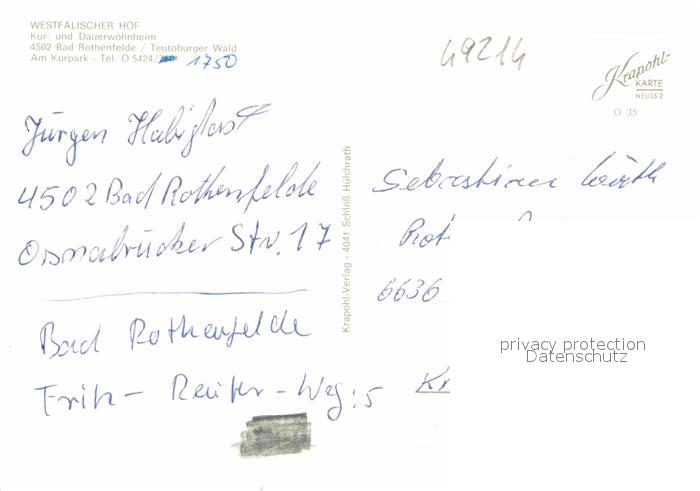 WESTFÄLISCHER HOF
Kur- und Dauerwohnheim
4502 Bad Rothenfelde / Teutoburger Wald
Am Kurpark - Tel. O 5424/ 1750
49214
Krapohl-
KARTE
NEUSS 2
O 35
Jürgen
4502 Bad Rothenfelde
Osnabrücker Str. 17
Bad Rothenfelde
Fritz-Reuter-Weg: 5
Krapohl-Verlag - 4041 Schloß Hülchrath
Sebastian
Rot
6636
Kr
privacy protection
Datenschutz